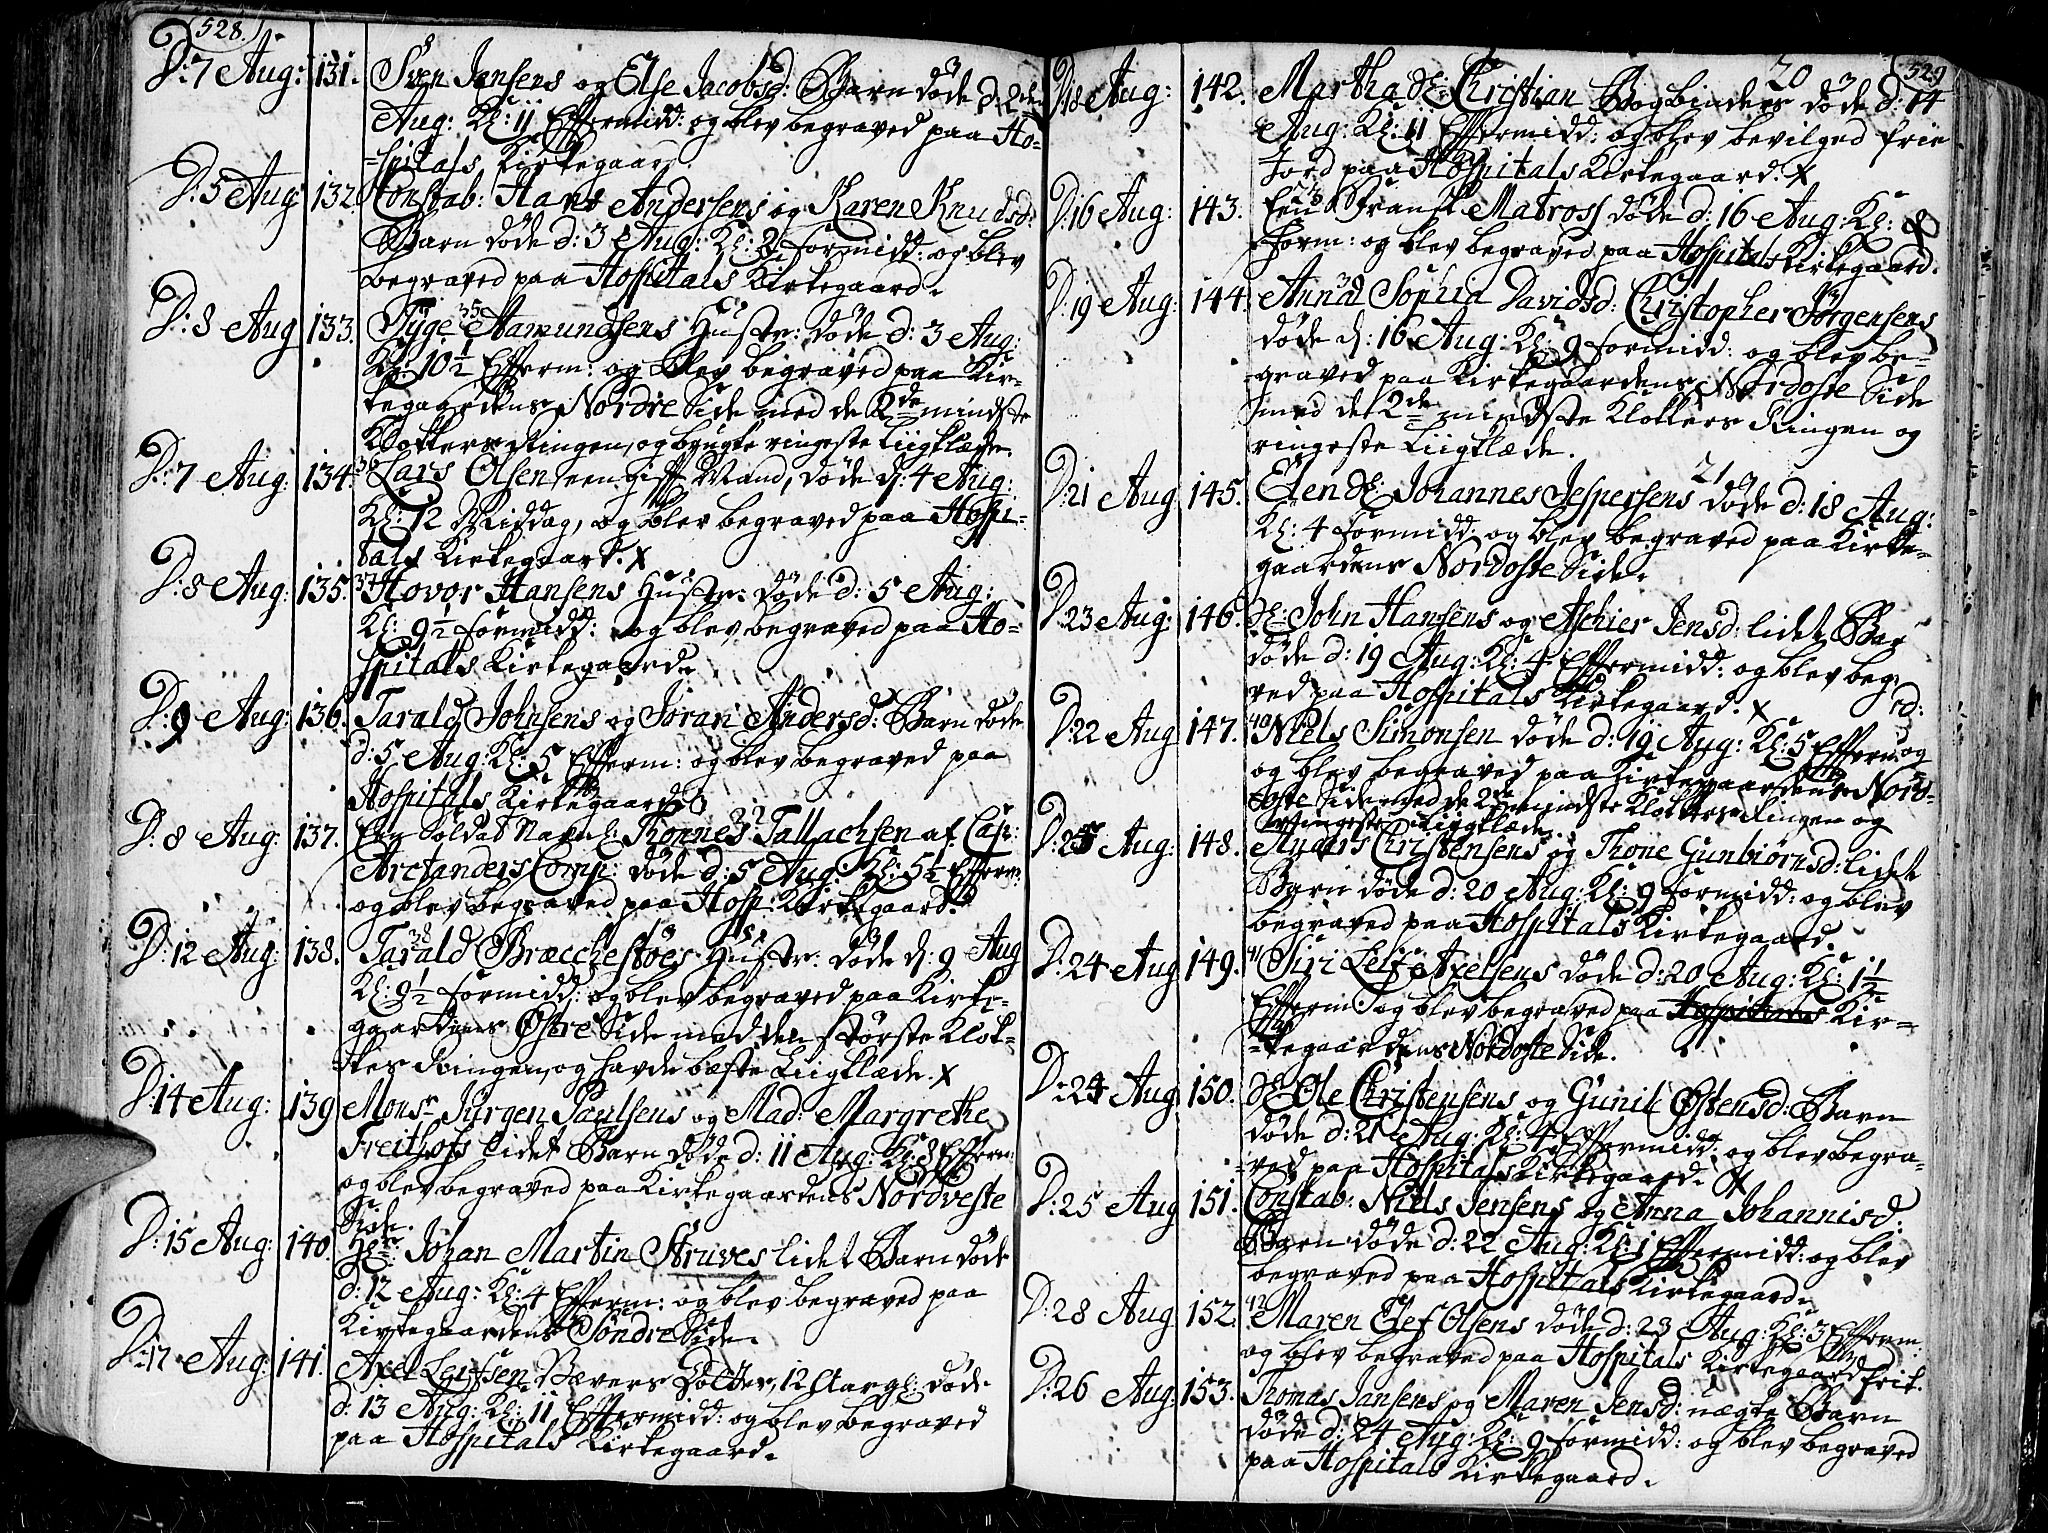 528.
D: 7 Aug: 131. Sven Jansens og Else Jacobsd: Barn døde d: 2den
Aug: Kl: 11 Efftermidd: og blev begraved paa Ho-
spitals Kirkegaard.
D: 5 Aug 132. Constab: Hans Andersens og Karen Knudsd:
Barn døde d: 3 Aug: Kl: 2 formidd: og blev
begraved paa Hospitals Kirkegaard.
D: 8 Aug 133. Tyge Aamundsens Hustr: døde d: 3 Aug:
Kl: 10½ Efferm: og blev begraved paa Kir-
kegaardens Nordre Side med de 2de mindste
Klokkers Ringen, og brugte ringeste Liigklæde.
D: 7 Aug: 134. Lars Olsen en gift Mand, døde d: 4 Aug:
Kl: 12 Middag, og blev begraved paa Hospi-
tals Kirkegaard. X
D: 8 Aug: 135. 37 Hovor Hansens Hustr: døde d: 5 Aug:
Kl: 9½ formidd: og blev begraved paa Ho-
spitals Kirkegaard.
D: 9 Aug: 136. Tarald Johnsens og Joran Andersd: Barn døde
d: 5 Aug: Kl: 5 Efferm: og blev begraved paa
Hospitals Kirkegaard
D: 8 Aug: 137. Een Soldat Navnl: Thonnes Tallachsen af Capt:
Arctanders Comp: døde d: 5 Aug Kl: 5½ Efferm:
og blev begraved paa Hosp: Kirkegaard.
D: 12 Aug: 138. Tarald Bræcchestøes Hustr: døde d: 9 Aug
Kl: 9½ formidd: og blev begraved paa Kirke-
gaardens Østre Side med den største Klok-
kes Ringen, og havde beste Liigklæde. X
D: 14 Aug: 139 Monsr Jürgen Paulsens og Mad: Margrethe
Freithofs lidet Barn døde d: 11 Aug: Kl: 8 Efferm:
og blev begraved paa Kirkegaardens Nordveste
Side.
D: 15 Aug: 140. Hr: Johan Martin Struves lidet Barn døde
d: 12 Aug: Kl: 4 Efferm: og blev begraved paa
Kirkegaardens Søndre Side.
D: 17 Aug: 141. Axel Leufsen Vævers Dotter, 12 Aar gl: døde
d: 13 Aug: Kl: 11 Efftermidd: og blev begraved
paa Hospitals Kirkegaard.
529
D: 18 Aug: 142. Martha Christian Bogbinders døde d: 14
Aug: Kl: 11 Efftermidd: og blev bevilged frie
Jord paa Hospitals Kirkegaard. X
D: 16 Aug: 143. Een Fransk Matross døde d: 16 Aug: Kl: 8
Form: og blev begraved paa Hospitals Kirkegaard.
D: 19 Aug: 144. Anna Sophia Davidsd: Christopher Jörgensens
døde d: 16 Aug: Kl: 9 formidd: og blev be-
graved paa Kirkegaardens Nordoste Side
med de 2de mindste Klokkers Ringen og
ringeste Liigklæde.
D: 21 Aug 145. Elen Johannes Jespersens døde d: 18 Aug:
Kl: 4 formidd og blev begraved paa Kirke-
gaardens Nordoste Side.
D: 23 Aug: 146. John Hansens og Aschier Jensd: lidet Bar
døde d: 19 Aug: Kl: 4 Efftermidd: og blev beg
ved paa Hospitals Kirkegaard. X
D: 22 Aug 147. 40 Niels Simonsen døde d: 19 Aug: Kl: 5 Efferm: og
og blev begraved paa Kirkegaardens Nord-
oste Side med de 2de mindste Klokkers Ringen og
ringeste Liigklæde.
D: 25 Aug: 148. Anders Christensens og Thone Gunbiörnsd: lidet
Barn døde d: 20 Aug: Kl: 9 formidd: og blev
begraved paa Hospitals Kirkegaard.
D: 24 Aug 149. 41 Siri Leif Axelsens døde d: 20 Aug: Kl: 1½
Efferm: og blev begraved paa Hospitals Kir-
kegaardens Nordoste Side.
D: 24 Aug 150. Ole Christensens og Gunil Østensd: Barn
døde d: 21 Aug: Kl: 4 Efftermidd: og blev begra-
ved paa Hospitals Kirkegaard. X
D: 25 Aug 151. Constab: Niels Jensens og Anna Johannisd:
Barn døde d: 22 Aug: Kl: 1 Efftermidd: og blev
begraved paa Hospitals Kirkegaard.
D: 28 Aug 152. Maren Elef Olsens døde d: 23 Aug: Kl: 3 Efferm:
og blev begraved paa Hospitals Kirkegaard frit.
D: 26 Aug: 153. Thomas Jansens og Maren Jensd: uægte Barn
døde d: 24 Aug: Kl: 9 formidd: og blev begraved
paa Hospitals Kirkegaard.